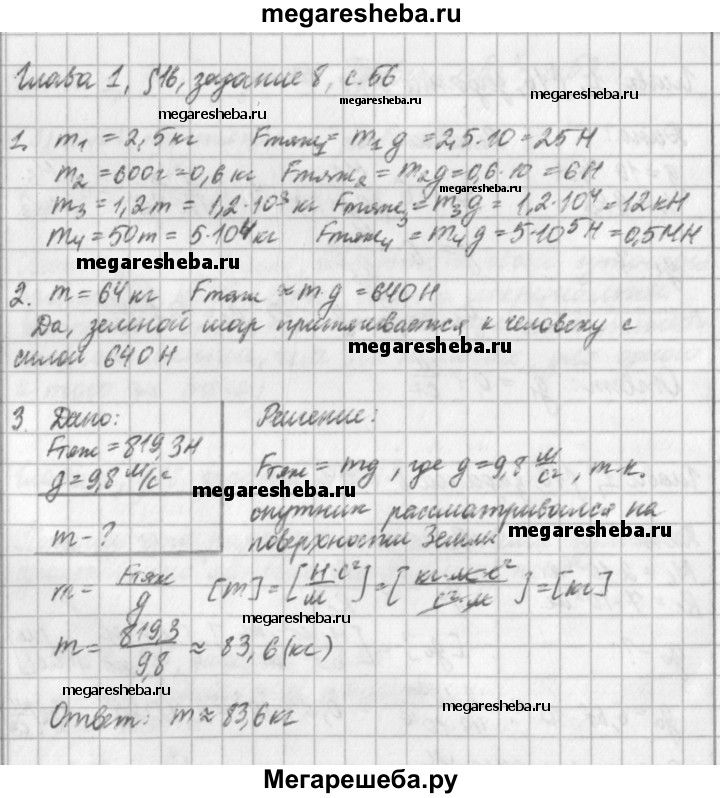 megaresheba.ru
Глава 1, §16, задание 8, с.56
megaresheba.ru
megaresheba.ru
1. m₁ = 2,5 кг Fтяж₁ = m₁g = 2,5·10 = 25 Н
megaresheba.ru
m₂ = 600г = 0,6 кг Fтяж₂ = m₂g = 0,6·10 = 6Н
megaresheba.ru
m₃ = 1,2т = 1,2·10³ кг Fтяж₃ = m₃g = 1,2·10⁴ = 12кН
m₄ = 50т = 5·10⁴ кг Fтяж₄ = m₄g = 5·10⁵Н = 0,5МН
megaresheba.ru
2. m = 64кг Fтяж ≈ mg = 640Н
Да, земной шар притягивается к человеку с
силой 640Н
megaresheba.ru
3. Дано: Решение:
Fтяж = 819,3Н
g = 9,8 м/с²
Fтяж = mg, где g = 9,8 м/с², т.к.
megaresheba.ru
спутник рассматривался на
поверхности Земли
megaresheba.ru
m - ?
m = Fтяж/g [m] = [Н·с²/м] = [кг·м·с²/с²·м] = [кг]
megaresheba.ru
m = 819,3/9,8 ≈ 83,6 (кг)
megaresheba.ru
megaresheba.ru
Ответ: m ≈ 83,6 кг
Мегарешеба.ру